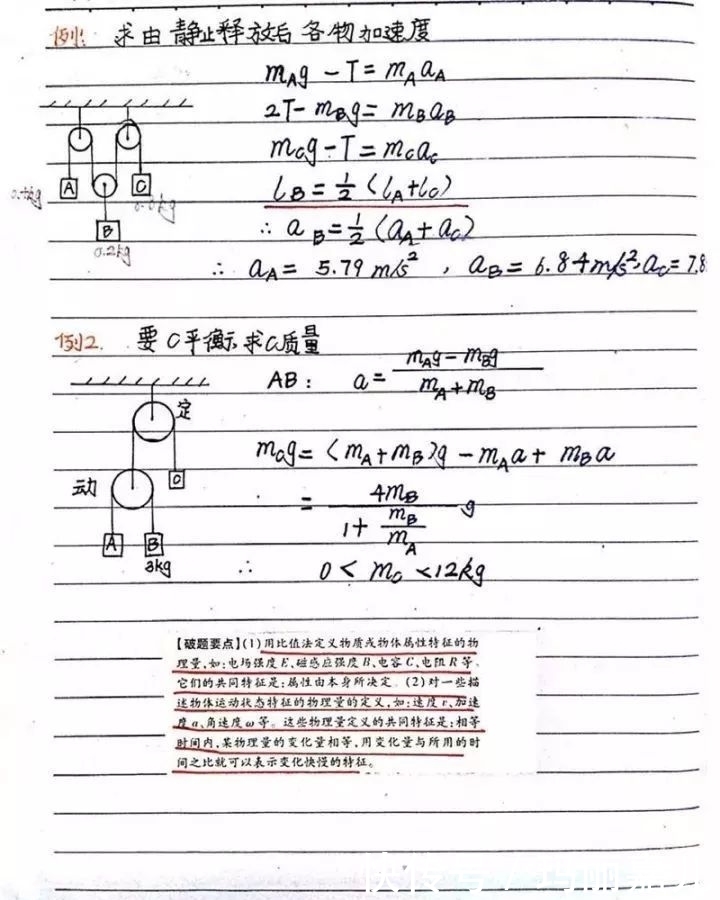 例1: 求由静止释放后各物加速度
mAg - T = mAaA
2T - mBg = mBaB
mCg - T = mCaC
lB = 1/2 (lA + lC)
∴ aB = 1/2 (aA + aC)
∴ aA = 5.79 m/s², aB = 6.84 m/s², aC = 7.8
A
C
B
0.2kg
例2. 要C平衡, 求C质量
AB: a = (mAg - mBg) / (mA + mB)
mCg = (mA + mB)g - mAa + mBa
= 4mB / (1 + mB/mA) g
∴ 0 < mC < 12kg
定
C
动
A
B
3kg
【破题要点】(1)用比值法定义物质或物体属性特征的物
理量,如:电场强度E、磁感应强度B、电容C、电阻R等。
它们的共同特征是:属性由本身所决定。(2)对一些描
述物体运动状态特征的物理量的定义,如:速度v、加速
度a、角速度ω等。这些物理量定义的共同特征是:相等
时间内,某物理量的变化量相等,用变化量与所用的时
间之比就可以表示变化快慢的特征。